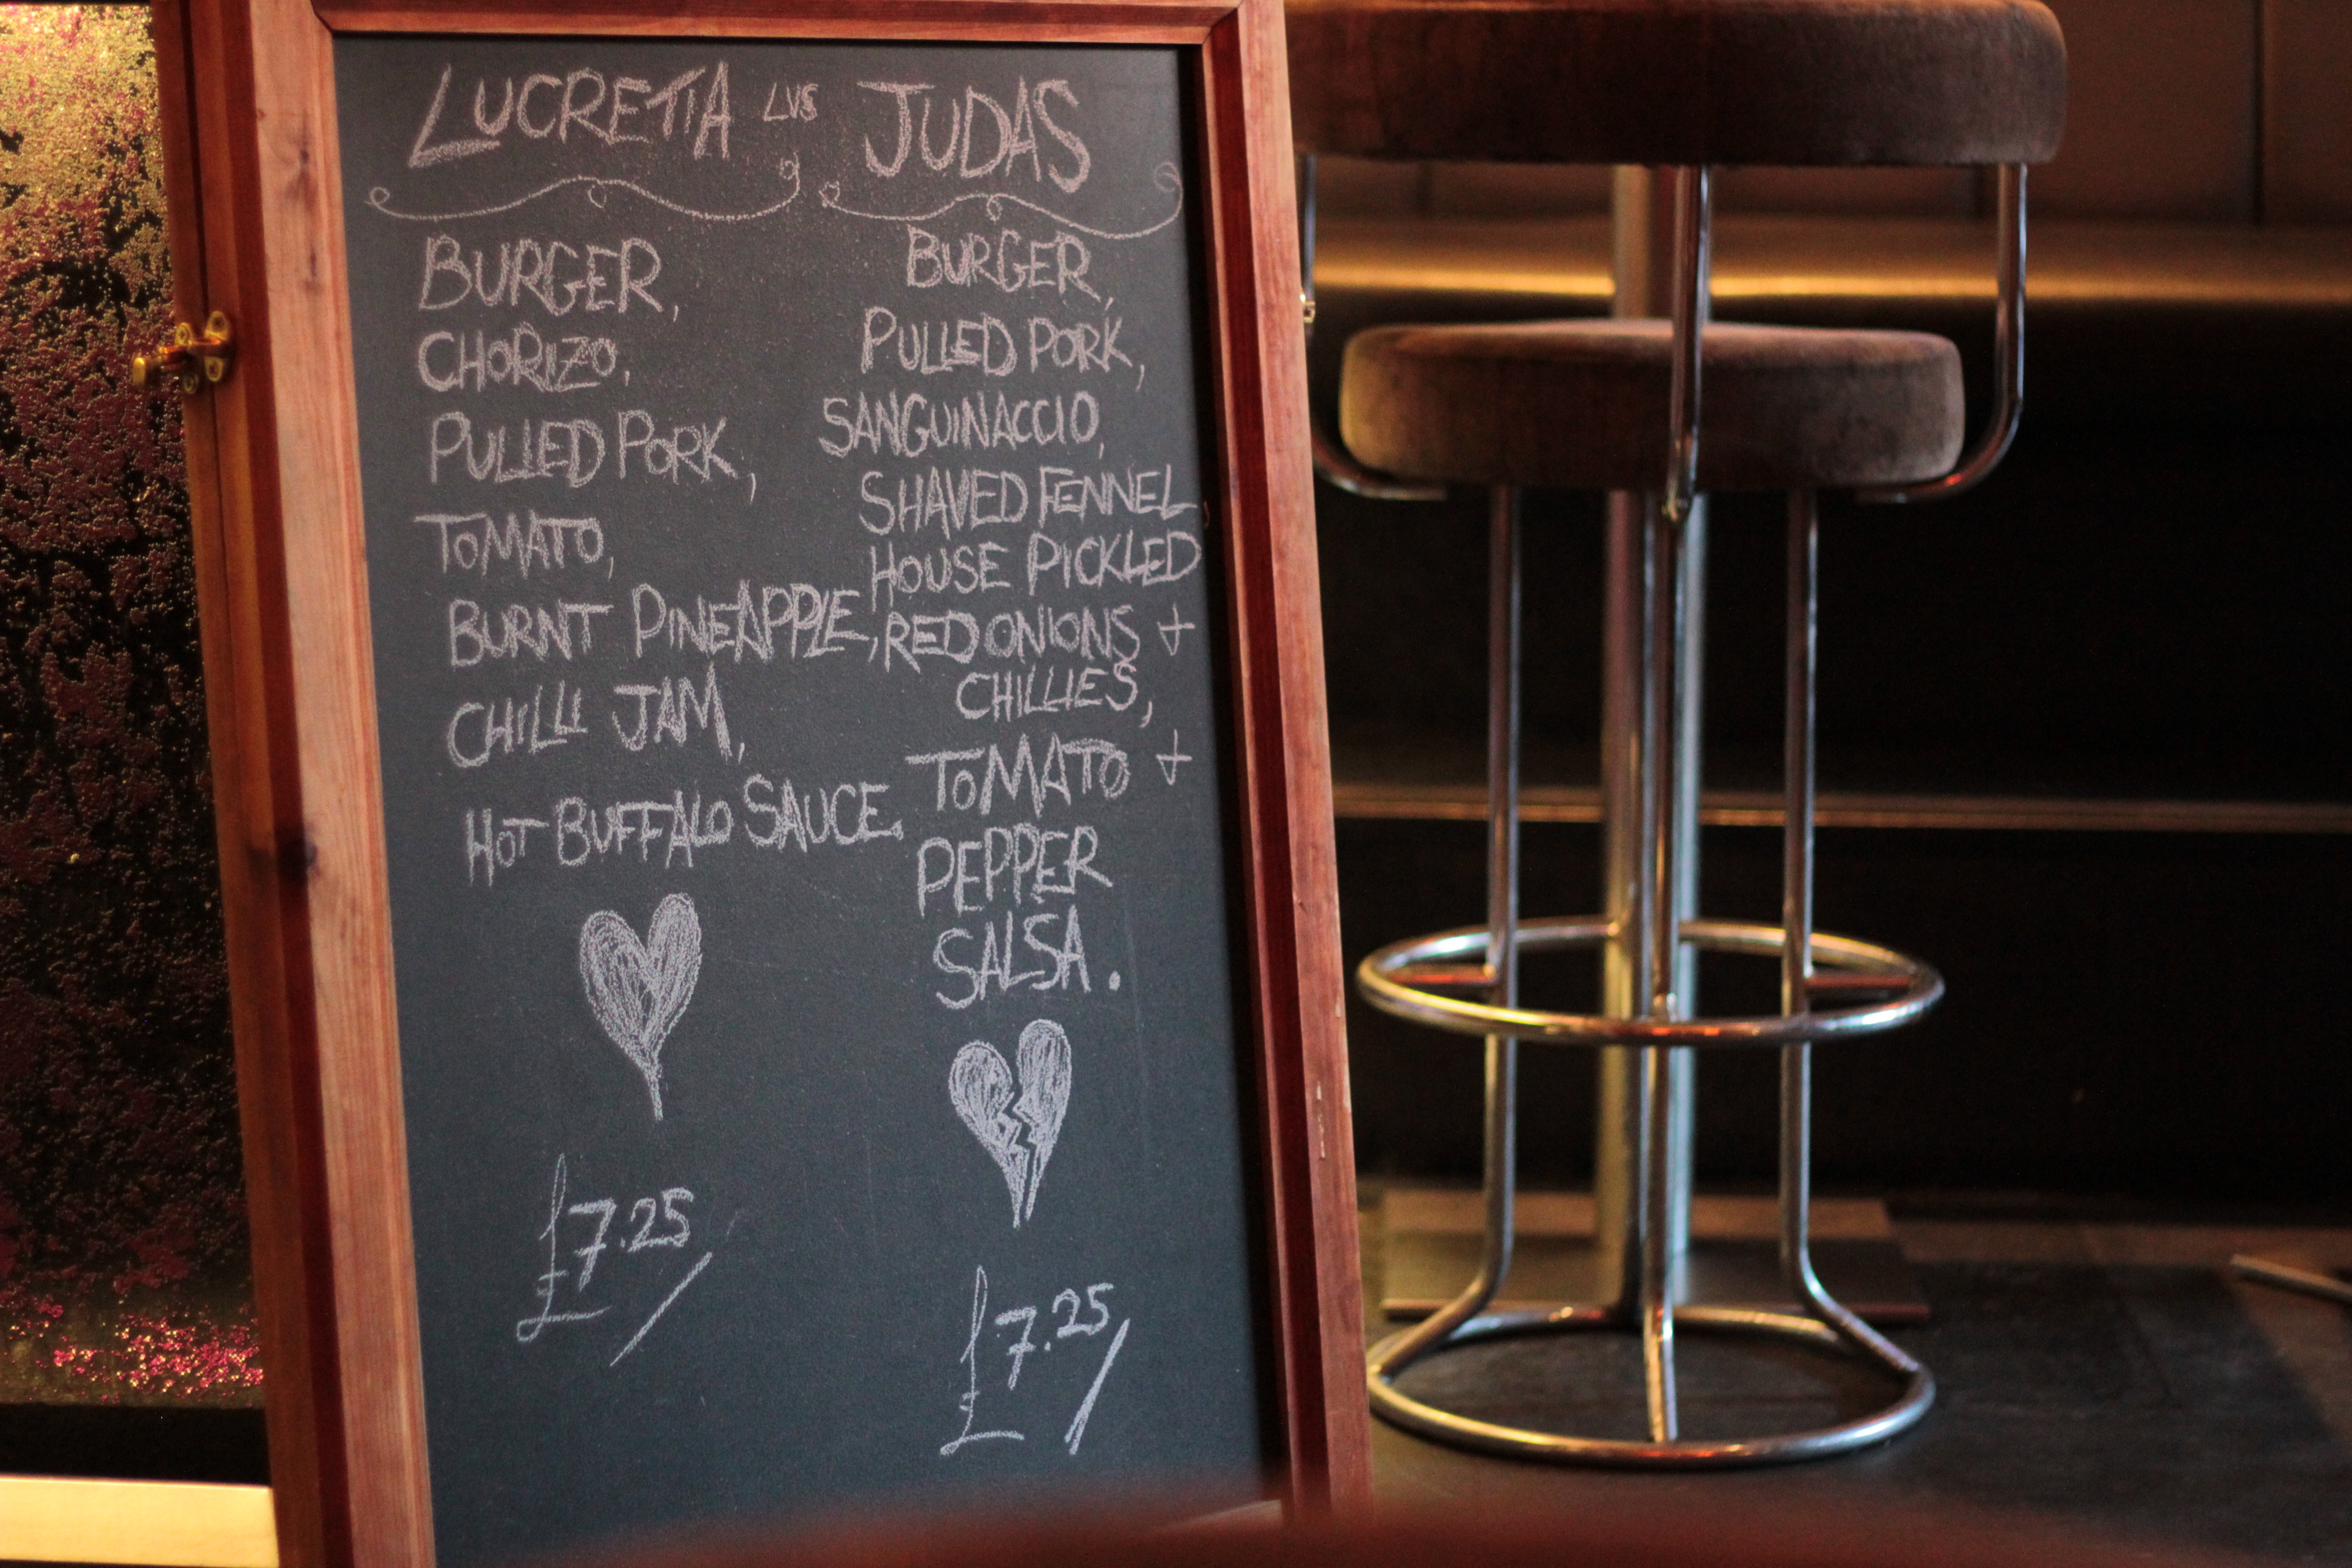 LUCRETIA LVS JUDAS
BURGER,
CHORIZO,
PULLED PORK,
TOMATO,
BURNT PINEAPPLE,
CHILLI JAM,
HOT BUFFALO SAUCE.
£7.25
BURGER,
PULLED PORK,
SANGUINACCIO,
SHAVED FENNEL,
HOUSE PICKLED
RED ONIONS +
CHILLIES,
TOMATO +
PEPPER
SALSA.
£7.25